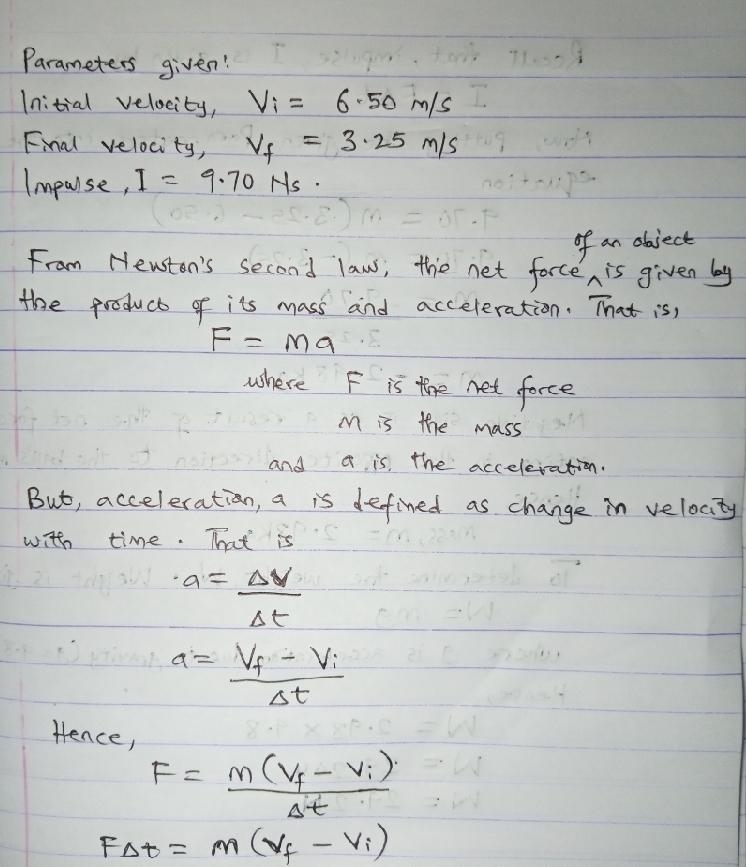 Parameters given:
Initial velocity, Vi = 6.50 m/s
Final velocity, Vf = 3.25 m/s
Impulse, I = 9.70 Ns.
From Newton's second law, the net force of an object is given by
the product of its mass and acceleration. That is,
F = ma
where F is the net force
m is the mass
and a is the acceleration.
But, acceleration, a is defined as change in velocity
with time. That is
a = ΔV
Δt
a = Vf - Vi
Δt
Hence,
F = m(Vf - Vi)
Δt
FΔt = m(Vf - Vi)